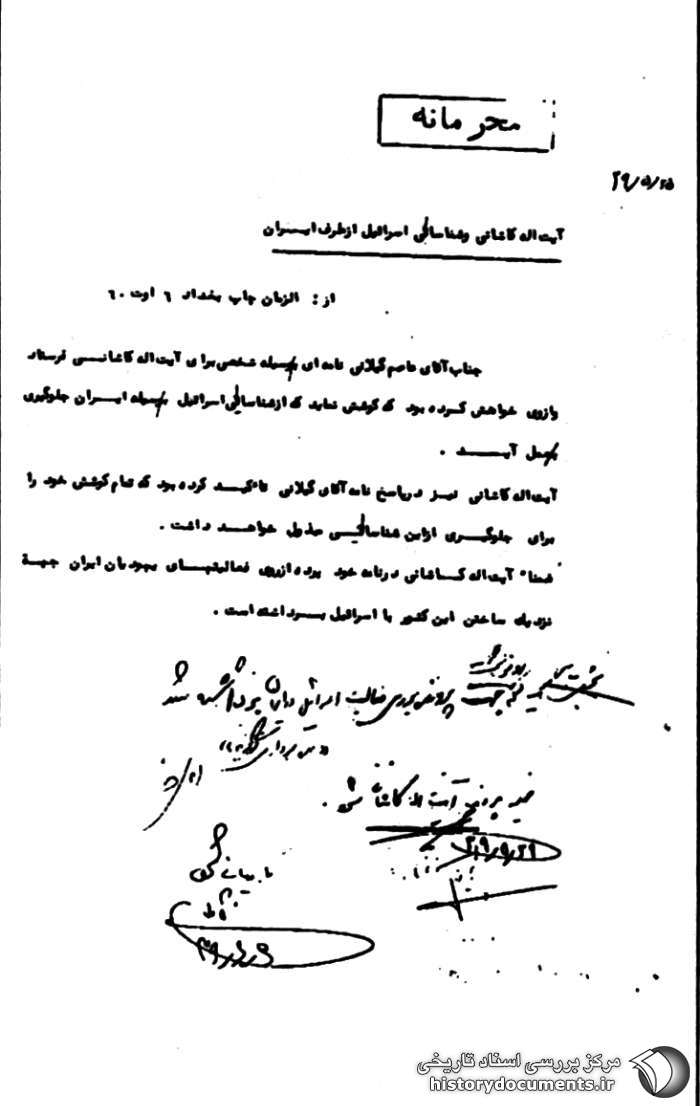 محرمانه
۲۹/۵/۲۵
آیت اله کاشانی وشناسائی اسرائیل ازطرف ایـــران
از : الزمان چاپ بغداد ٦ اوت ٦۰
جناب آقای عاصم گیلانی نامه ای بوسیله شخصی برای آیت اله کاشانــی فرستاد
وازوی خواهش کـرده بود که کوشش نماید که ازشناسائی اسرائیل بوسیله ایــران جلوگیری
بعمل آیـــد .
آیت اله کاشانی نیـز درپاسخ نامه آقای گیلانی تاکیـد کرده بود که تمام کوشش خود را
برای جلوگیــری ازاین شناسائــی مبذول خواهــد داشت .
ضمنا" آیت اله کـاشانی درنامه خود پرده ازروی فعالیتهـای یهودیان ایران جهـة
نزدیك ساختن این کشور با اسرائیل بـــرداشته است .
جهت پرونده فعالیت اسرائیل در ایران برداشته شد
پرونده آیت اله کاشانی شود .
بایگانی
مرکز بررسی اسناد تاریخی
historydocuments.ir